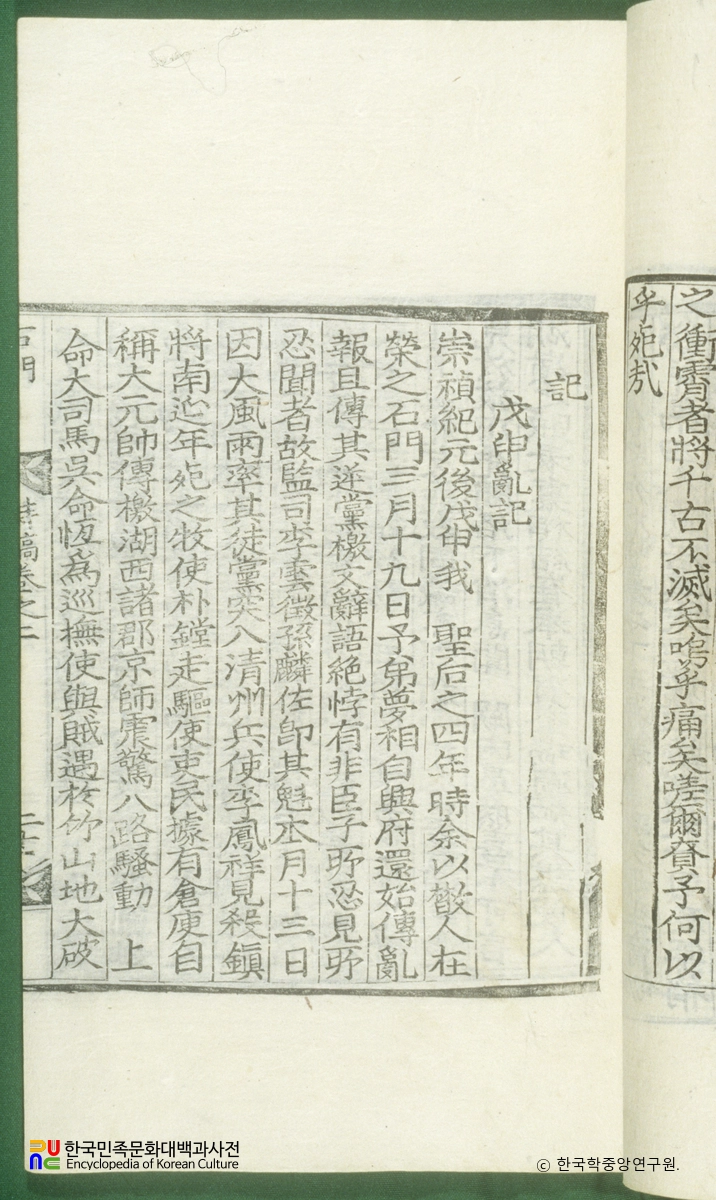 之衝霄者將千古不滅矣嗚乎痛矣嗟爾賚予何以
乎死哉
記
戊申亂記
崇禎紀元後戊申我 聖后之四年時余以散人在
榮之石門三月十九日予弟夢相自興府還始傳亂
報且傳其逆黨檄文辭語絶悖有非臣子所忍見所
忍聞者故監司李雲徵孫麟佐卽其魁本月十三日
因大風雨率其徒黨突入清州兵使李鳳祥見殺鎭
將南延年死之牧使朴鏜走驅使吏民據有倉庾自
稱大元帥傳檄湖西諸郡京師震驚八路騷動 上
命大司馬吳命恆爲巡撫使與賊遇於竹山地大破
石門
集稿卷之二
한국민족문화대백과사전
Encyclopedia of Korean Culture
© 한국학중앙연구원.